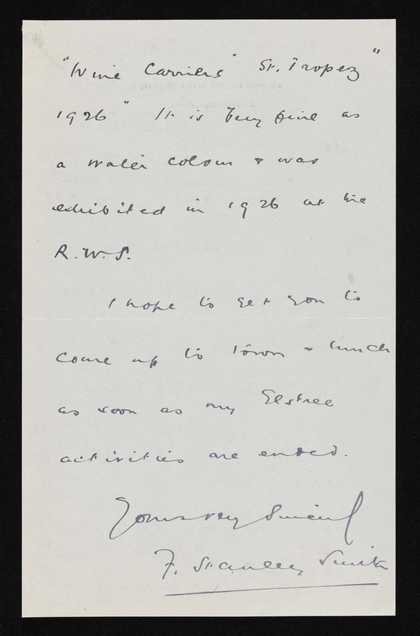 "Wine Carriers" St. Tropez"
1926" It is very fine as
a water colour & was
exhibited in 1926 at the
R.W.S.
I hope to get you to
come up to town & lunch
as soon as my Elstree
activities are ended.
Yours very Sincerely
F. Stanley Smith